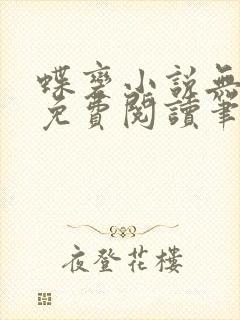 蝶變小說無
免費閱讀筆
夜登花樓